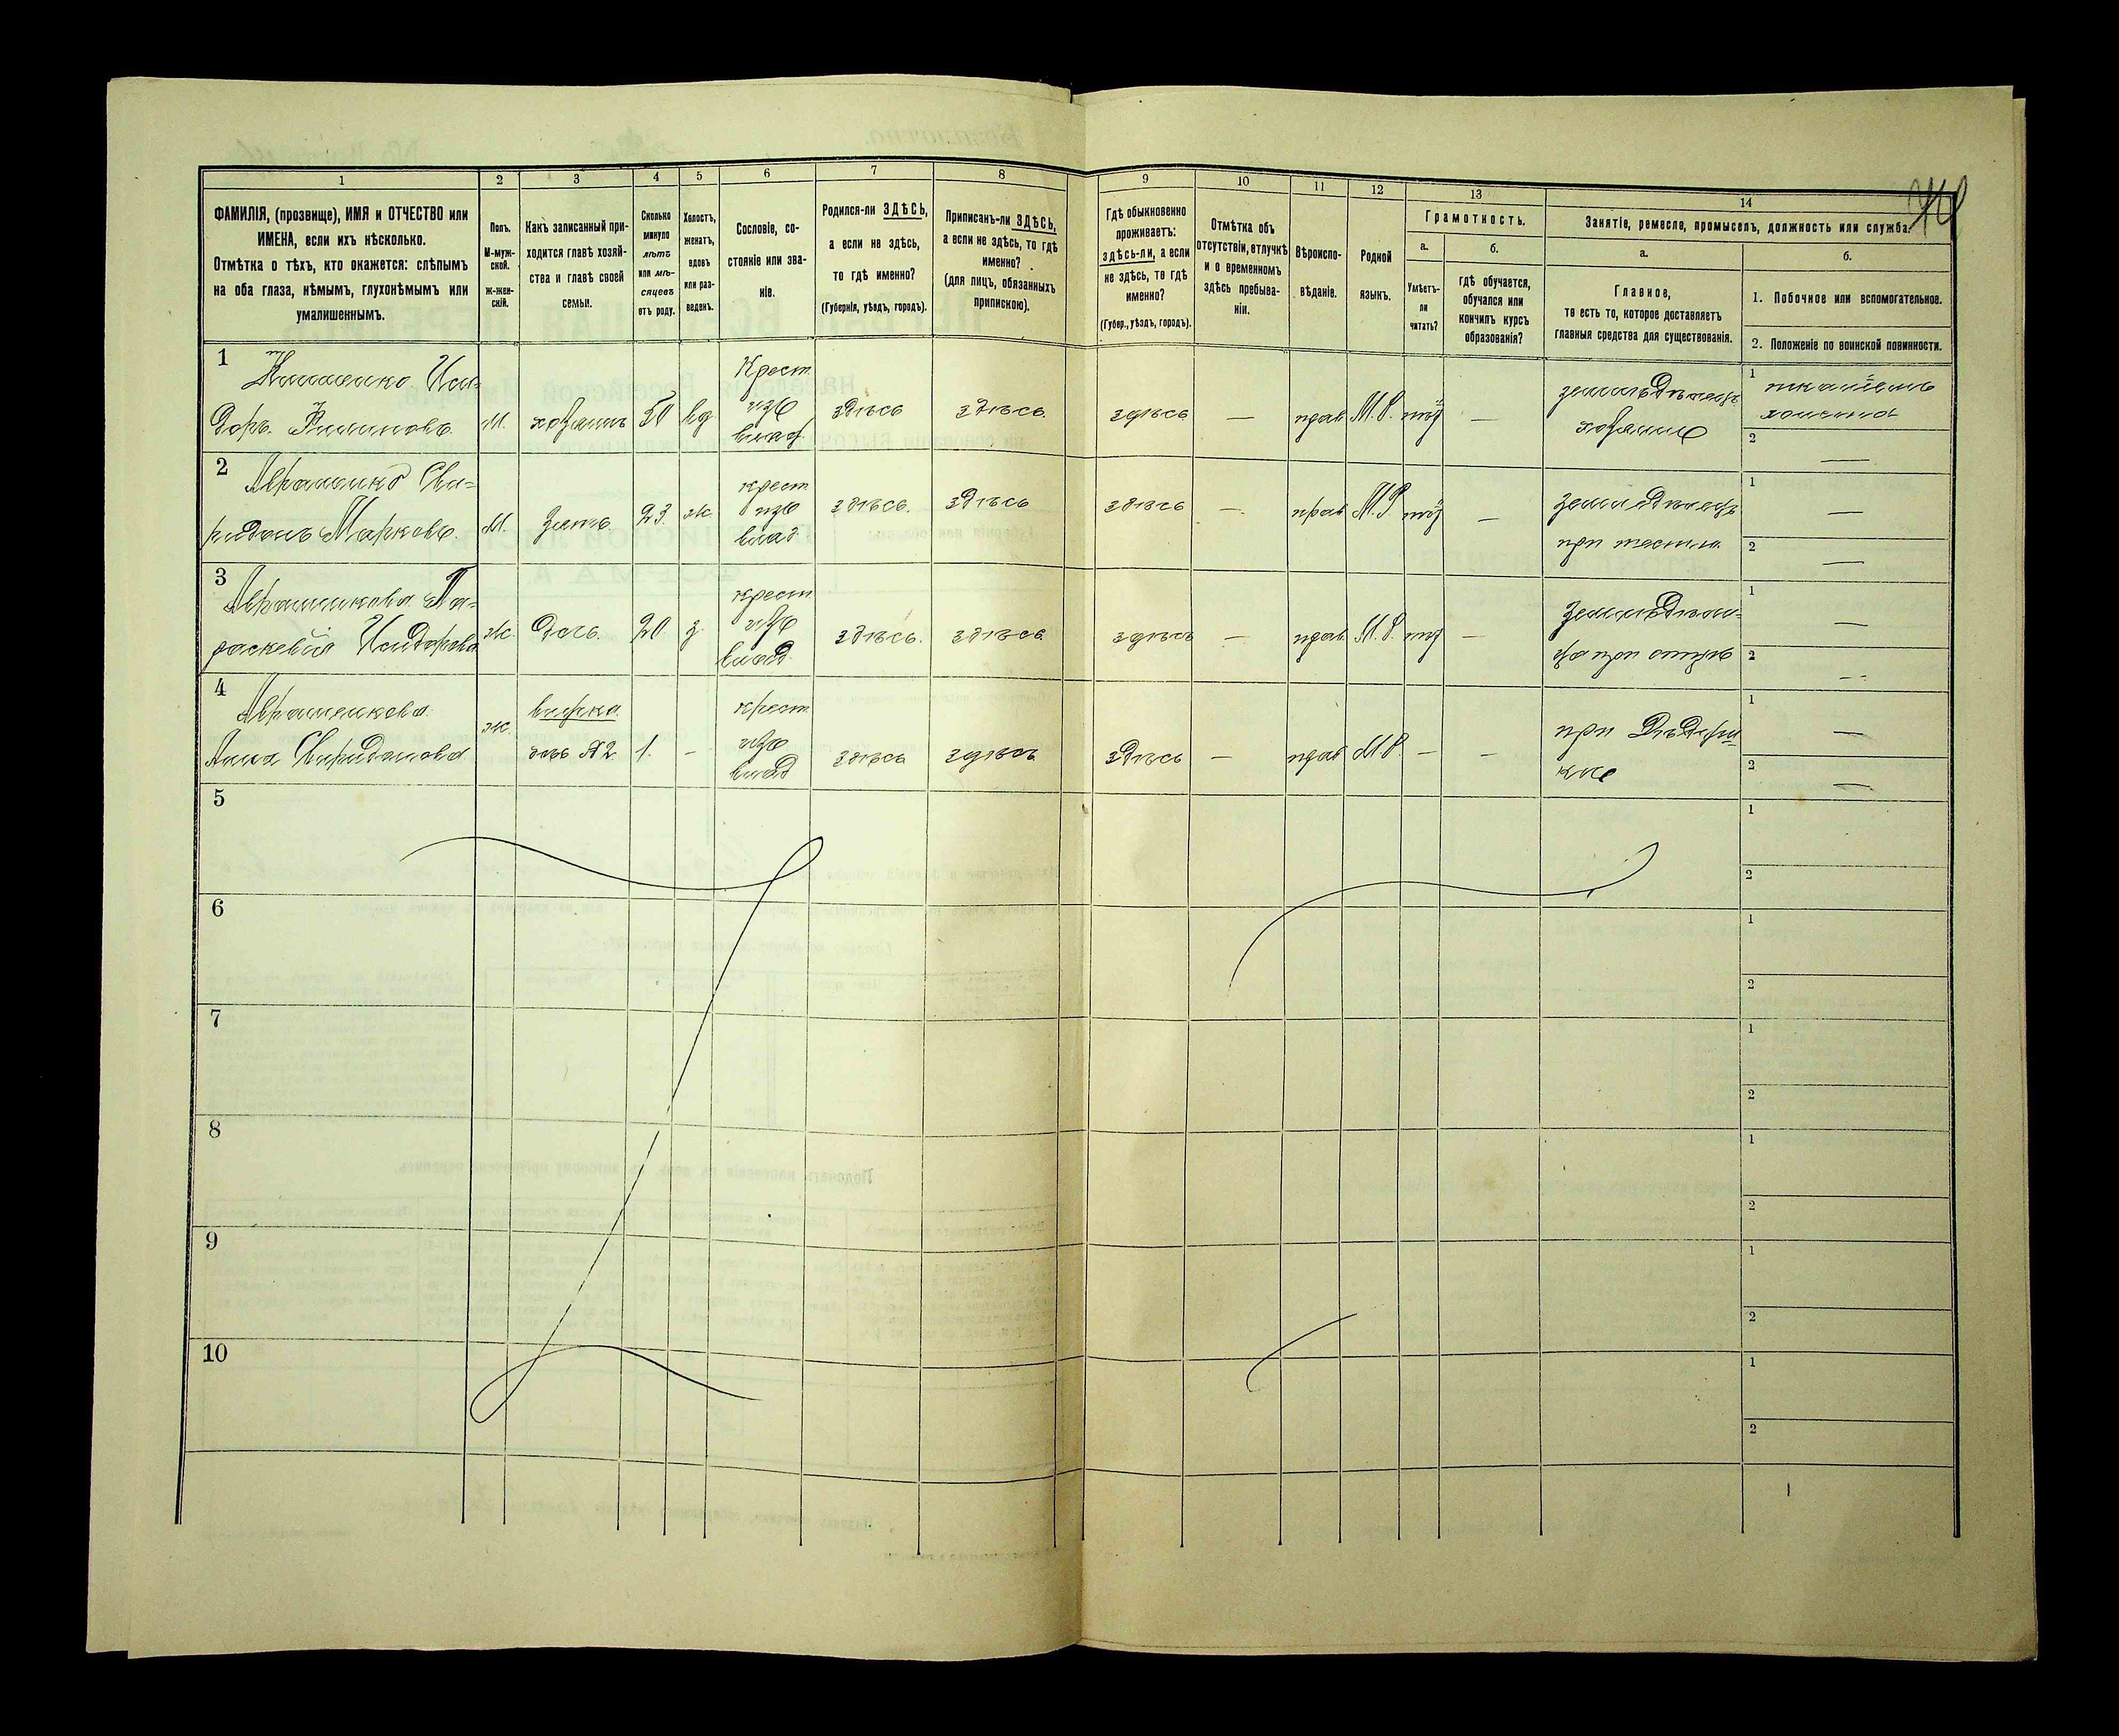 1 2 3 4 5 6 7 8 9 10 11 12 13 14
ФАМИЛІЯ, (прозвище), ИМЯ и ОТЧЕСТВО или
ИМЕНА, если ихъ нѣсколько.
Отмѣтка о тѣхъ, кто окажется: слѣпымъ
на оба глаза, нѣмымъ, глухонѣмымъ или
умалишеннымъ.
Полъ.
М-муж-
ской.
Ж-жен-
скій.
Какъ записанный при-
ходится главѣ хозяй-
ства и главѣ своей
семьи.
Сколько
минуло
лѣтъ
или мѣ-
сяцевъ
отъ роду.
Холостъ,
женатъ,
вдовъ
или раз-
веденъ.
Сословіе, со-
стояніе или зва-
ніе.
Родился-ли ЗДѢСЬ,
а если не здѣсь,
то гдѣ именно?
(Губернія, уѣздъ, городъ).
Приписанъ-ли ЗДѢСЬ,
а если не здѣсь, то гдѣ
именно?
(для лицъ, обязанныхъ
припискою).
Гдѣ обыкновенно
проживаетъ:
здѣсь-ли, а если
не здѣсь, то гдѣ
именно?
(Губер., уѣздъ, городъ).
Отмѣтка объ
отсутствіи, отлучкѣ
и о временномъ
здѣсь пребыва-
ніи.
Вѣроиспо-
вѣданіе.
Родной
языкъ.
Грамотность.
а.
Умѣетъ-
ли
читать?
б.
гдѣ обучается,
обучался или
кончилъ курсъ
образованія?
Занятіе, ремесло, промыселъ, должность или служба.
а.
Главное,
то есть то, которое доставляетъ
главныя средства для существованія.
б.
1. Побочное или вспомогательное.
2. Положеніе по воинской повинности.
1
Иси-
доръ Филиповъ
М. хозяинъ 50 вд
Крест
изъ
влад
здѣсь здѣсь здѣсь — прав М.Р. —
земледѣлецъ
хозяинъ
1
2 —
2 Авраменко Сви-
ридонъ Марковъ
М. Зять 23 ж
крест
изъ
влад
здѣсь. здѣсь здѣсь — прав М.Р. —
земледѣлецъ
при тестѣ
1 —
2 —
3 Авраменкова Па-
раскевія Исидорова
ж. дочь 20 з
крест
изъ
влад
здѣсь. здѣсь здѣсь — прав М.Р. —
Земледѣли-
ца при отцѣ
1 —
2 —
4 Авраменкова
Анна Свиридонова
ж. внучка
дочь №2 1. —
крест
изъ
влад
здѣсь здѣсь здѣсь — прав М.Р. — —
при дѣдуш-
кѣ
1 —
2 —
5 1
2
6 1
2
7 1
2
8 1
2
9 1
2
10 1
2